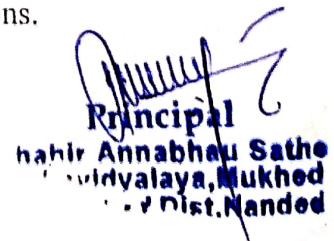 ns.
Principal
hahir Annabhau Sathe
vidyalaya, Mukhed
Dist. Nanded